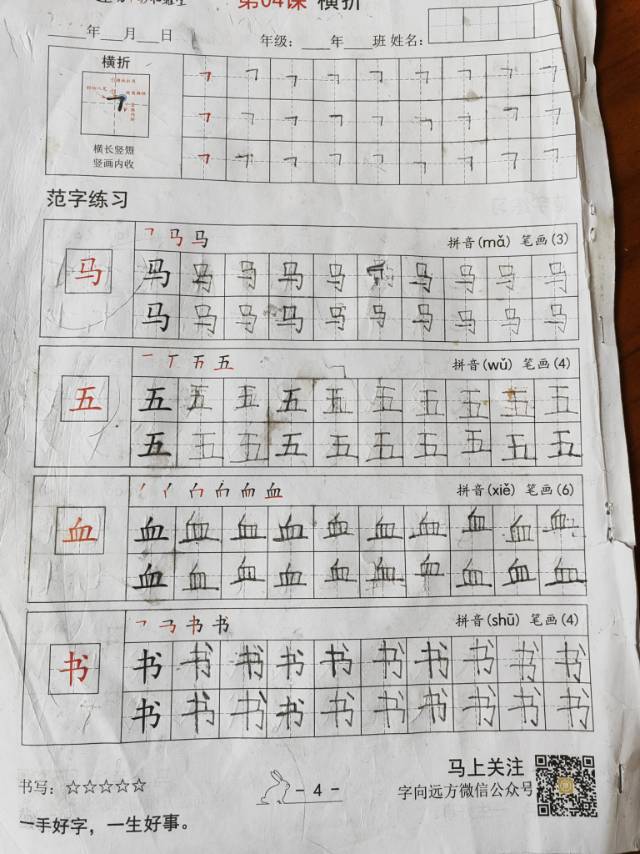 第04课 横折
年 月 日 年级： 年 班 姓名：
横折
横长竖短
竖画内收
范字练习
马 拼音(mǎ) 笔画(3)
马 马 马 马 马 马 马 马 马 马 马
马 马 马 马 马 马 马 马 马 马
五 拼音(wǔ) 笔画(4)
五 五 五 五 五 五 五 五 五 五 五
五 五 五 五 五 五 五 五 五 五
血 拼音(xiě) 笔画(6)
血 血 血 血 血 血 血 血 血 血 血
血 血 血 血 血 血 血 血 血 血
书 拼音(shū) 笔画(4)
书 书 书 书 书 书 书 书 书 书 书
书 书 书 书 书 书 书 书 书 书
书写：☆☆☆☆☆
- 4 -
马上关注
字向远方微信公众号
一手好字，一生好事。